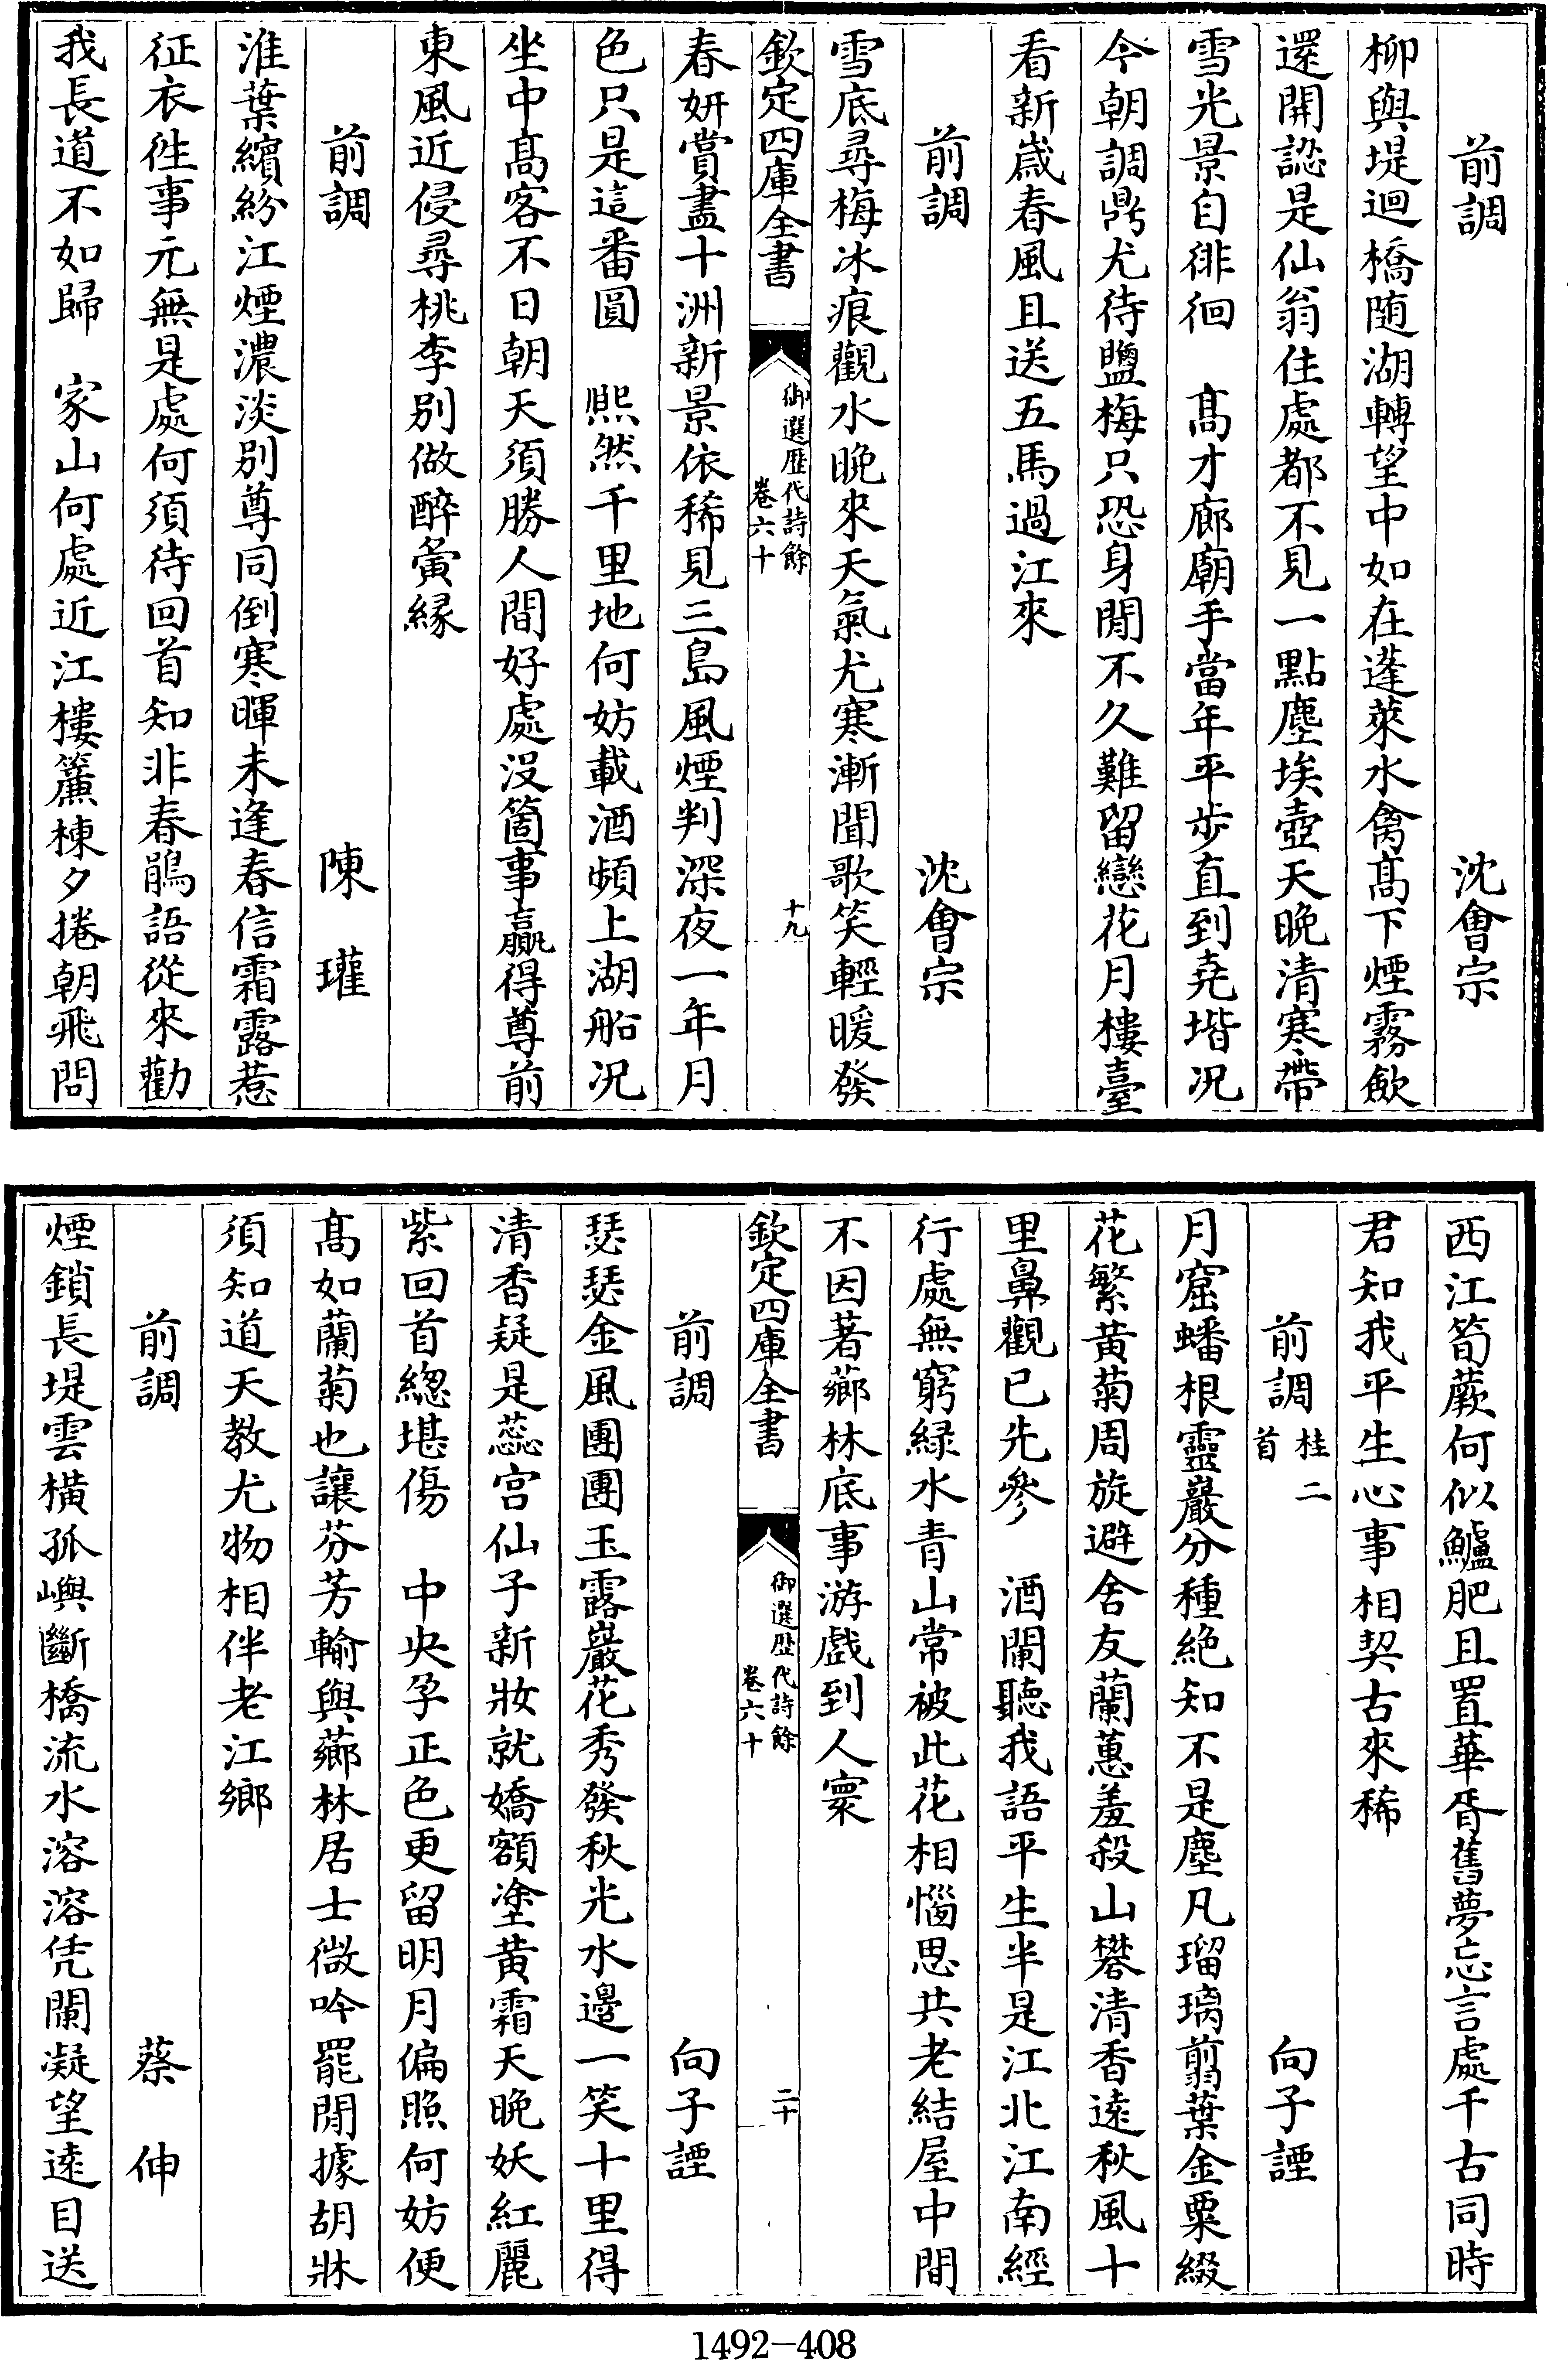 前調　沈會宗
柳與堤迴橋随湖轉望中如在蓬萊水禽髙下煙霧歛
還開認是仙翁住處都不見一點塵埃壺天晚清寒帶
雪光景自徘徊　髙才廊廟手當年平步直到堯堦况
今朝調鼎尤待鹽梅只恐身閒不久難留戀花月樓臺
看新嵗春風且送五馬過江來
前調　沈會宗
雪底尋梅冰痕觀水晚來天氣尤寒漸聞歌笑輕暖發
欽定四庫全書
御選歴代詩餘
卷六十
十九
春妍賞盡十洲新景依稀見三島風煙判深夜一年月
色只是這番圓　熙然千里地何妨載酒頻上湖船况
坐中髙客不日朝天須勝人間好處沒箇事贏得尊前
東風近侵尋桃李别做醉夤縁
前調　陳瓘
淮葉繽紛江煙濃淡别尊同倒寒暉未逢春信霜露惹
征衣徃事元無是處何須待回首知非春鵑語從來勸
我長道不如歸　家山何處近江樓簾棟夕捲朝飛問
西江筍蕨何似鱸肥且置華胥舊夢忘言處千古同時
君知我平生心事相契古來稀
前調桂二首　向子諲
月窟蟠根靈巖分種絶知不是塵凡瑠璃翦葉金粟綴
花繁黄菊周旋避舍友蘭蕙羞殺山礬清香逺秋風十
里鼻觀已先參　酒闌聽我語平生半是江北江南經
行處無窮緑水青山常被此花相惱思共老結屋中間
不因著薌林底事游戯到人寰
欽定四庫全書
御選歴代詩餘
卷六十
二十
前調　向子諲
瑟瑟金風團團玉露巖花秀發秋光水邊一笑十里得
清香疑是蕊宫仙子新妝就嬌額塗黄霜天晚妖紅麗
紫回首緫堪傷　中央孕正色更留明月偏照何妨便
髙如蘭菊也讓芬芳輸與薌林居士微吟罷閒據胡牀
須知道天教尤物相伴老江鄉
前調　蔡伸
煙鎖長堤雲橫孤嶼斷橋流水溶溶凭闌凝望逺目送
1492－408